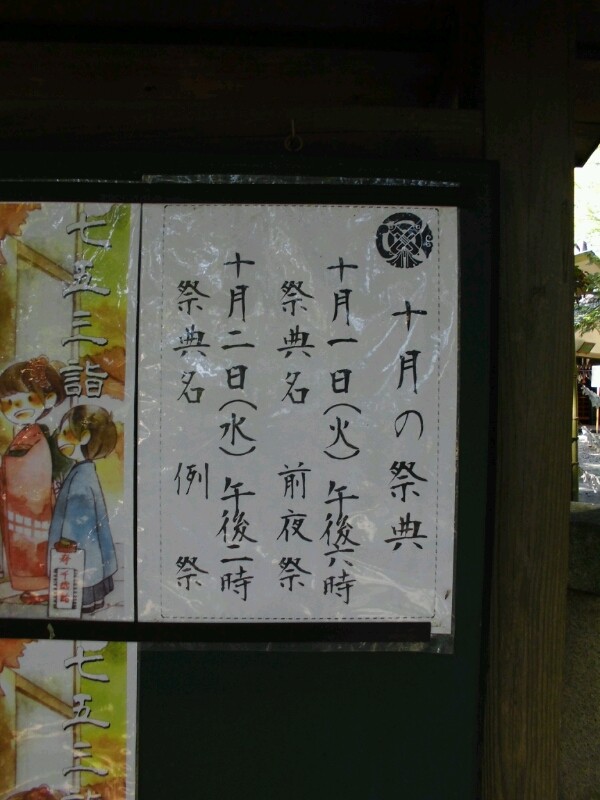 十月の祭典
十月一日(火)午後六時
祭典名 前夜祭
十月二日(水)午後二時
祭典名 例祭
七五三詣
寿 千歳飴
七五三